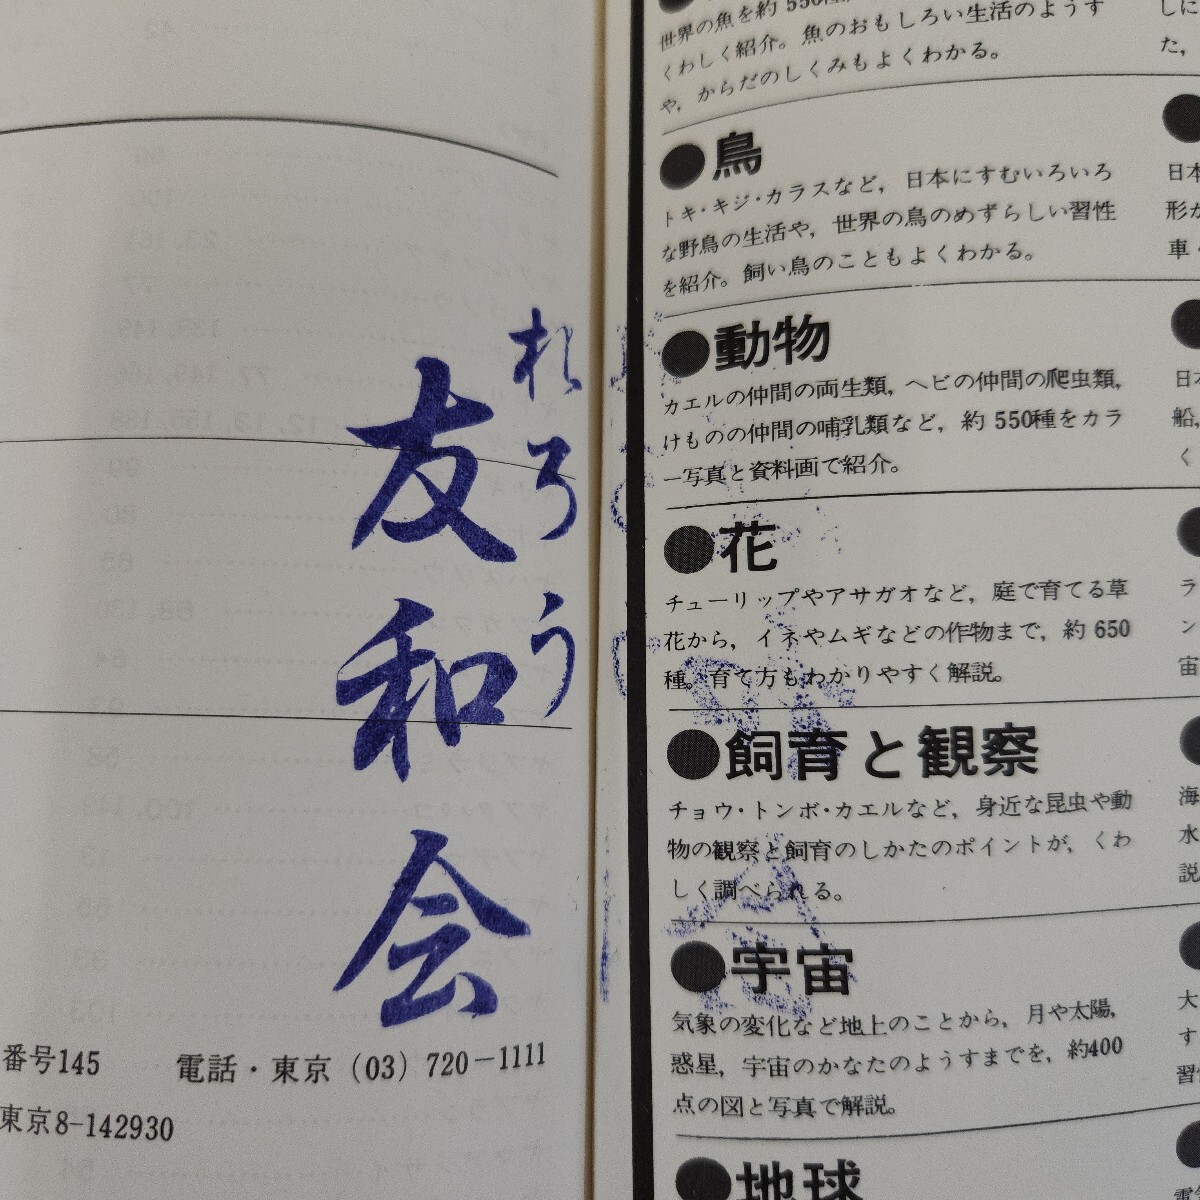 れろう
友和会
番号145　電話・東京（03）720−1111
東京8−142930
世界の魚を約550種
くわしく紹介。魚のおもしろい生活のようす
や，からだのしくみもよくわかる。
●鳥
トキ・キジ・カラスなど，日本にすむいろいろ
な野鳥の生活や，世界の鳥のめずらしい習性
を紹介。飼い鳥のこともよくわかる。
●動物
カエルの仲間の両生類，ヘビの仲間の爬虫類，
けものの仲間の哺乳類など，約550種をカラ
ー写真と資料画で紹介。
●花
チューリップやアサガオなど，庭で育てる草
花から，イネやムギなどの作物まで，約650
種。育て方もわかりやすく解説。
●飼育と観察
チョウ・トンボ・カエルなど，身近な昆虫や動
物の観察と飼育のしかたのポイントが，くわ
しく調べられる。
●宇宙
気象の変化など地上のことから，月や太陽，
惑星，宇宙のかなたのようすまでを，約400
点の図と写真で解説。
●地球
た，
日本
形か
車・
日本
船，
く
ラ
ン
宙
海
水
説
大
す
習